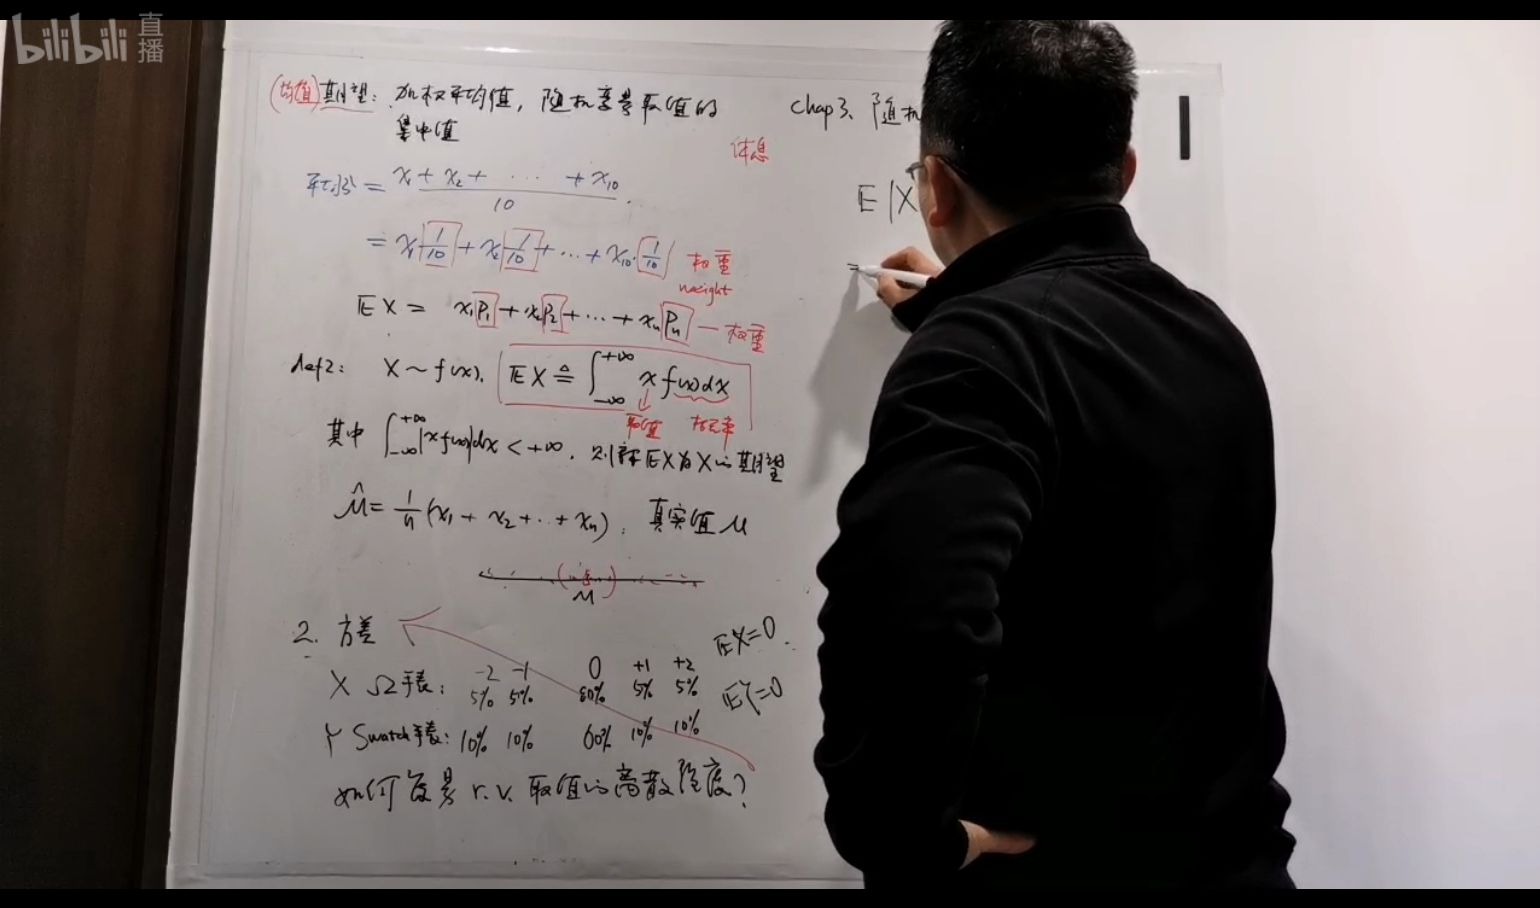 bilibili 直播
(均值)期望：加权平均值，随机变量取值的
集中值
体息
平均分 = (x₁ + x₂ + ··· + x₁₀) / 10
= x₁ 1/10 + x₂ 1/10 + ··· + x₁₀· 1/10 权重
weight
EX = x₁P₁ + x₂P₂ + ··· + xₙPₙ — 权重
def2: X ~ f(x), EX ≜ ∫_{-∞}^{+∞} x f(x)dx
取值 概率
其中 ∫_{-∞}^{+∞} |x f(x)|dx < +∞, 则称EX为X的期望
μ̂ = 1/n (x₁ + x₂ + ··· + xₙ), 真实值 μ
μ
2. 方差
EX=0
X Ω手表: -2 -1 0 +1 +2
5% 5% 80% 5% 5%
EY=0
Y Swatch手表: 10% 10% 60% 10% 10%
如何衡量 r.v. 取值的离散程度?
chap3、随机
E|X
=